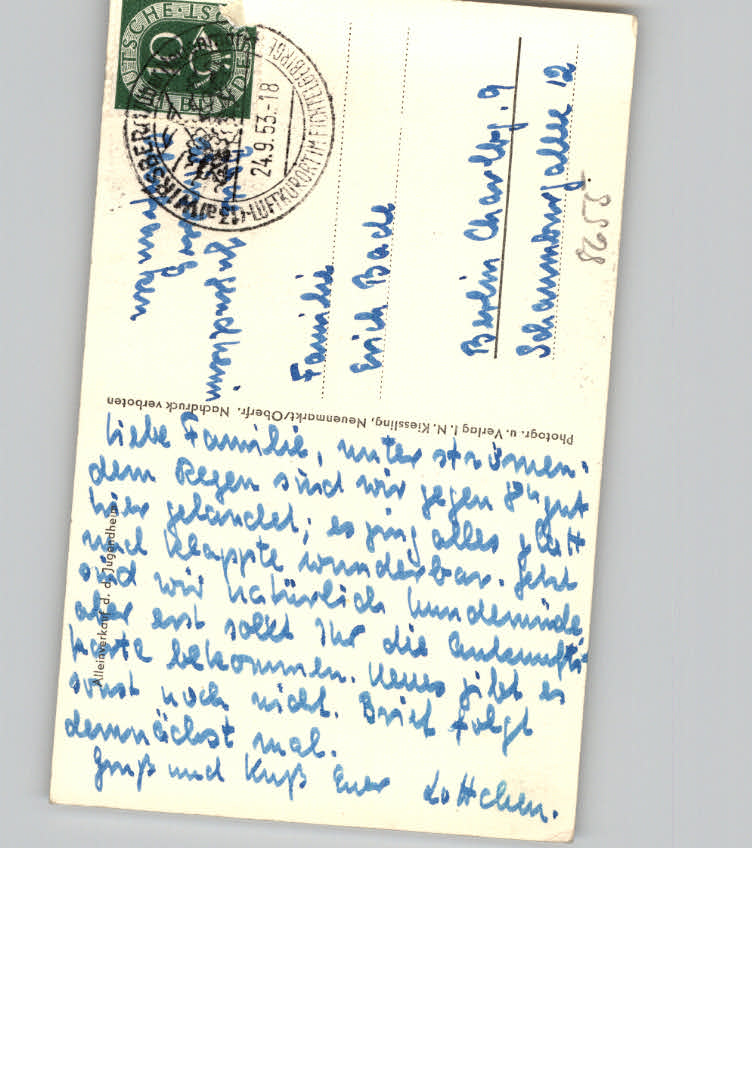 Liebe Familie, unter strömen-
dem Regen sind wir gegen gut
hier gelandet; es ging alles glatt
und klappte wunderbar. Jetzt
sind wir natürlich hundemüde
aber erst sollt Ihr die Ankunfts
karte bekommen. Neues gibt es
sonst noch nicht. Brief folgt
demnächst mal.
Gruß und Kuß Euer Lottchen.
Alleinverkauf d. d. Jugendheim
Photogr. u. Verlag f. N. Kiessling, Neuenmarkt/Oberfr. Nachdruck verboten
DEUTSCHE BUNDESPOST
10
WIRSBERG
24.9.53.-18
LUFTKURORT IM FICHTELGEBIRGE
Jugendheim
Familie
Erich Bade
Berlin Charlbg. 9
Schaumburgallee 12
8655